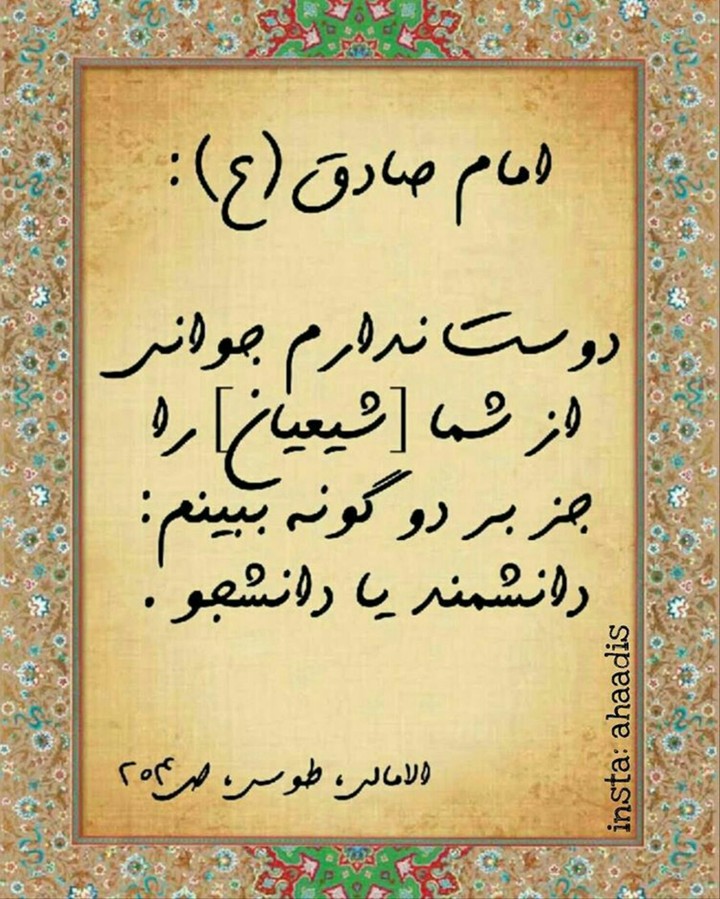 امام صادق (ع) :
دوست ندارم جوانی
از شما [شیعیان] را
جز بر دو گونه ببینم:
دانشمند یا دانشجو .
الامالی، طوسی، ص۳۰۴
insta: ahaadis